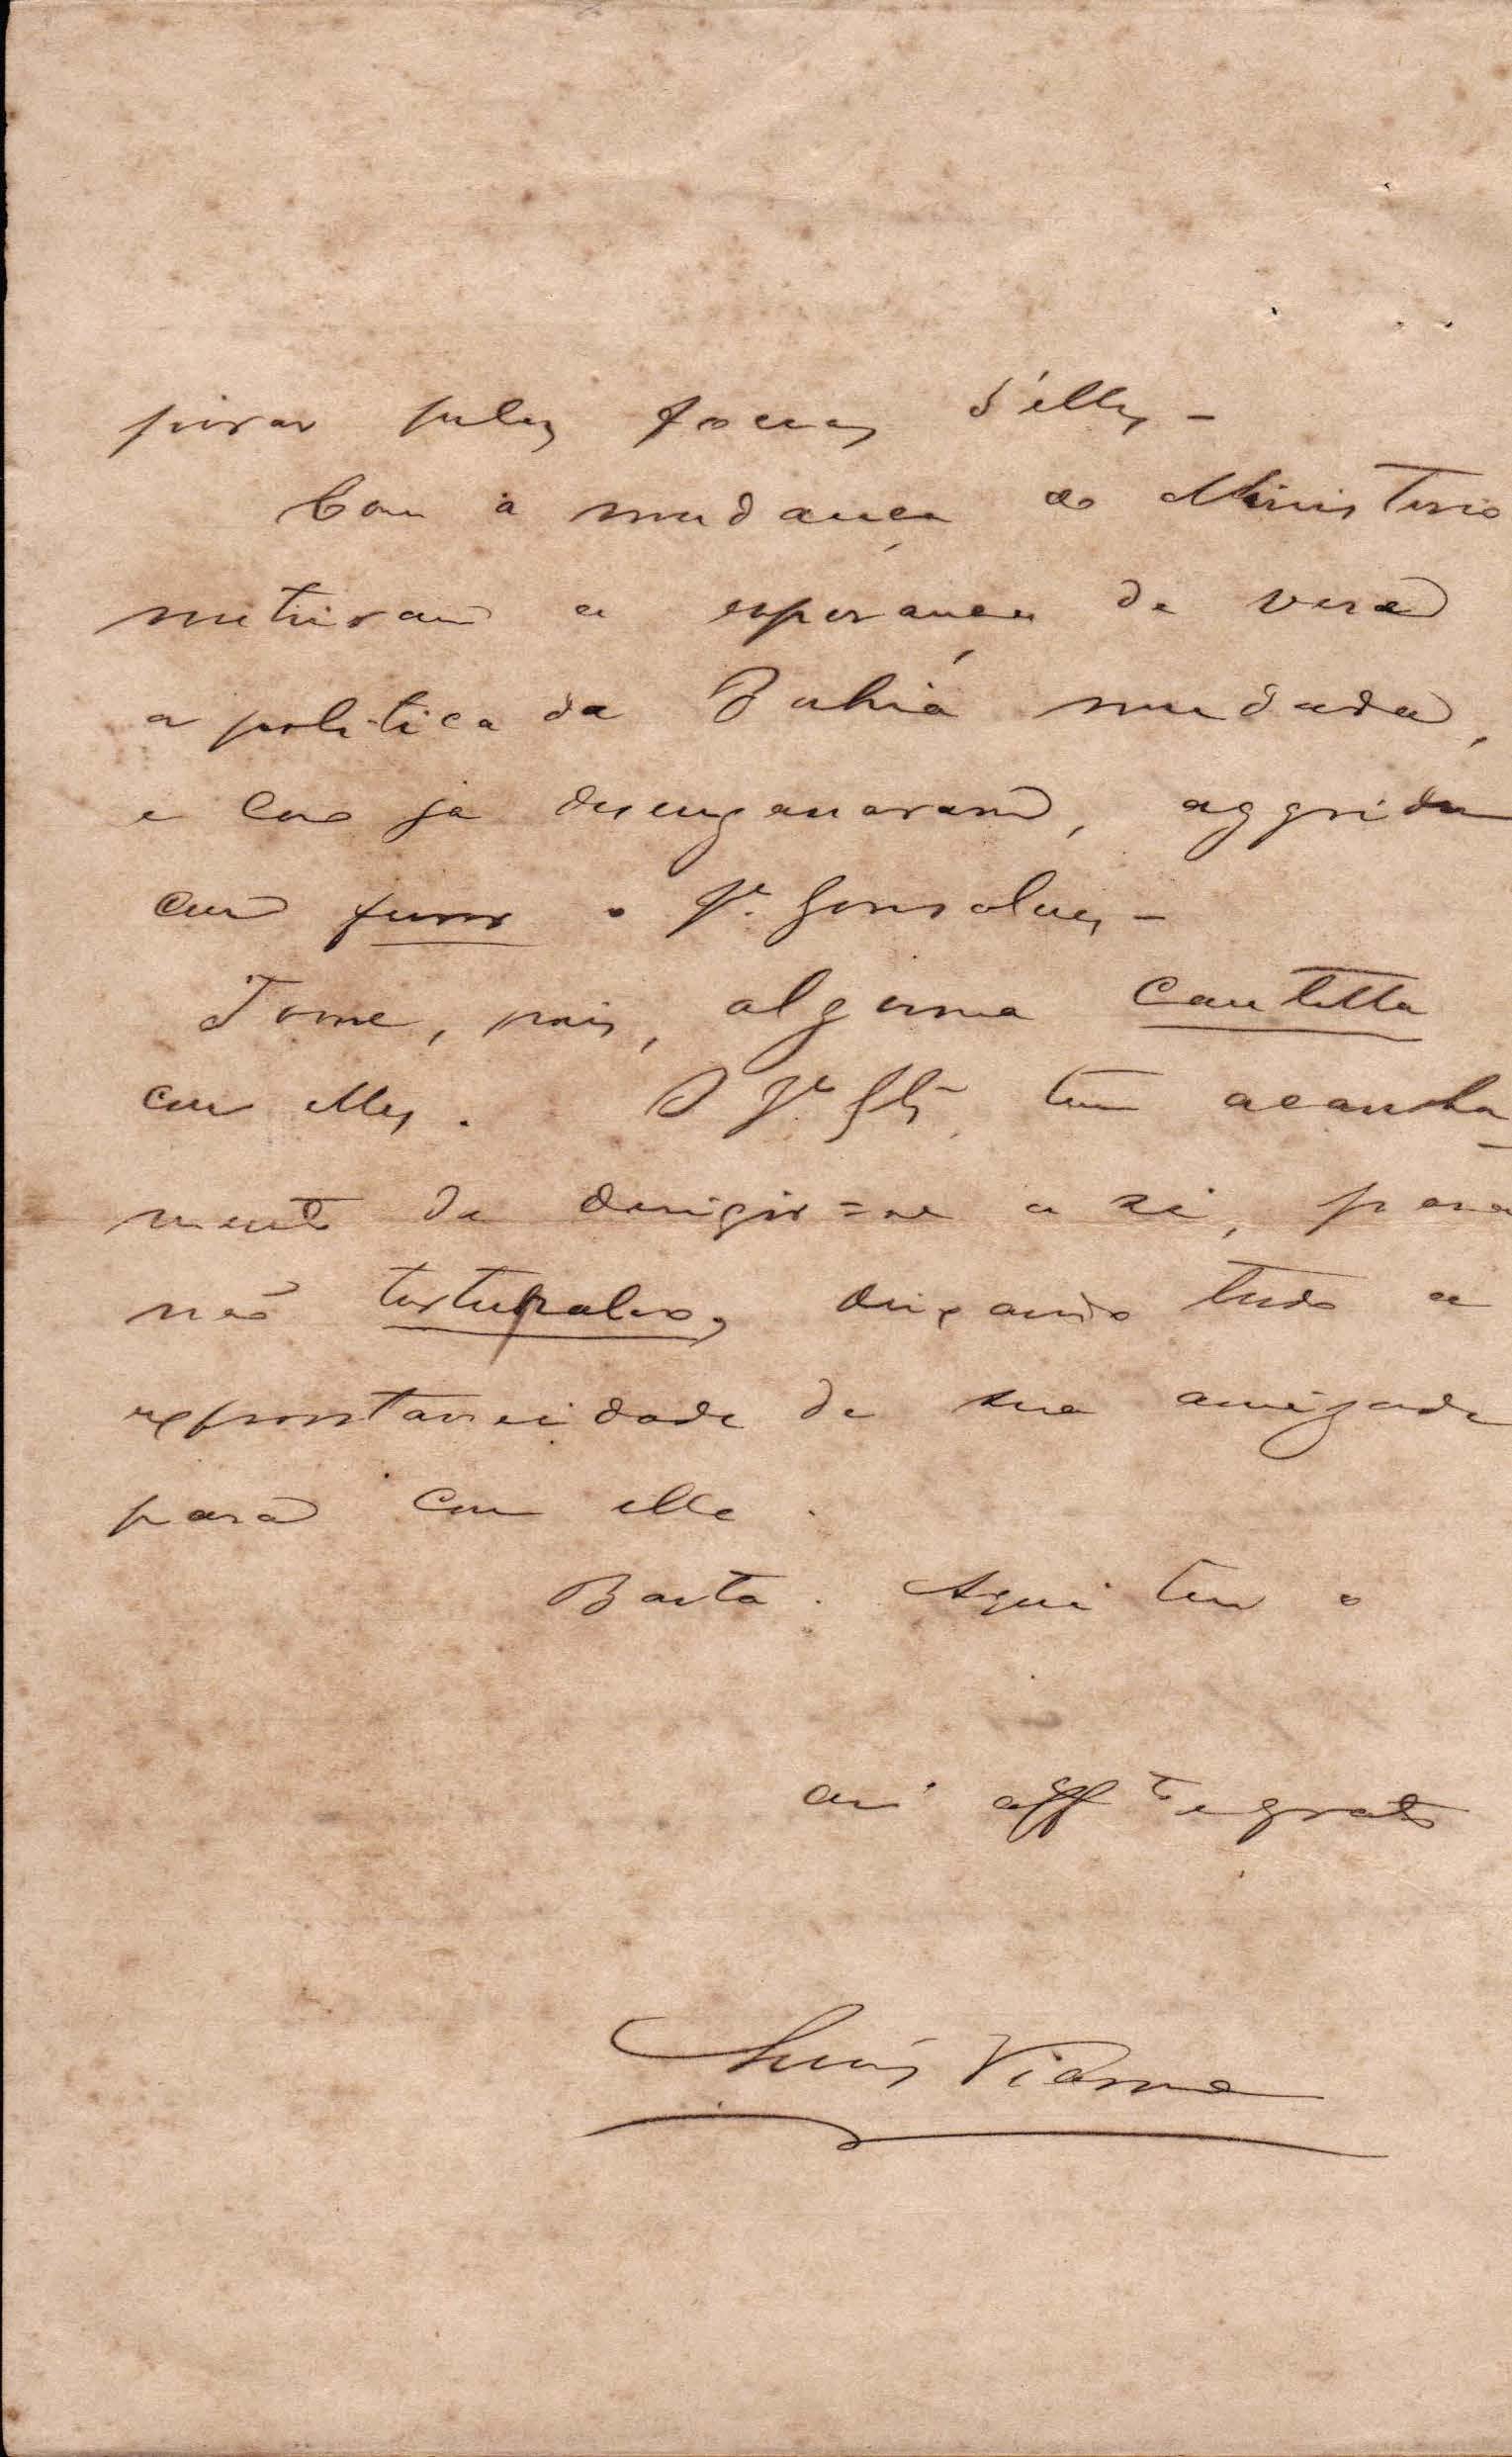 pelas d'elles -
Com a mudança do Ministerio
nutriram a esperança de verem
a politica da Bahia mudada,
e como já desenganaram, aggridem
com furor o Je. Gonsalves -
Tome, pois, alguma cautella
com elles. O Je. Glz tem acanha-
mento de dirigir=se a si, para
não deixando tudo a
espontaneidade de sua amizade
para com elle.
Basta. Aqui tem o
am.º aff.to e grato
Luis Vianna